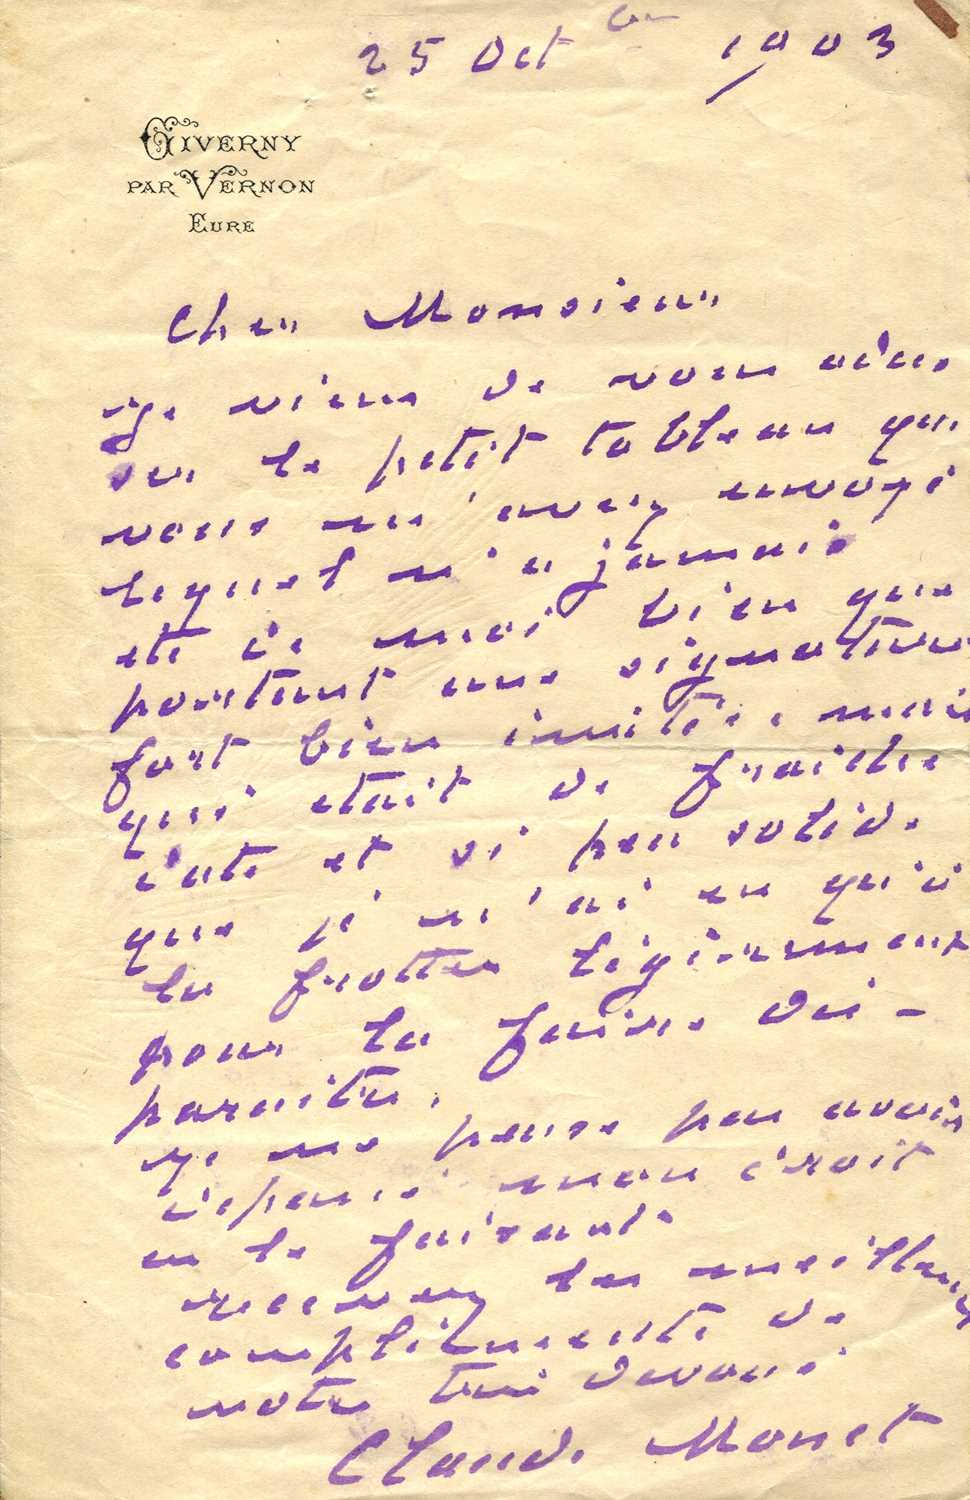 25 Oct bre 1903
GIVERNY
PAR VERNON
EURE
Cher Monsieur
Je viens de vous
sur le petit tableau que
vous m'avez envoyé
lequel n'a jamais
été de moi bien que
portant une signature
fort bien imitée, mais
qui était de fraîche
date et si peu solide
que je n'ai eu qu'à
la frotter légèrement
pour la faire dis-
paraître.
Je ne pense pas avoir
dépassé mon droit
en le faisant.
recevez les meilleurs
compliments de
votre très dévoué
Claude Monet